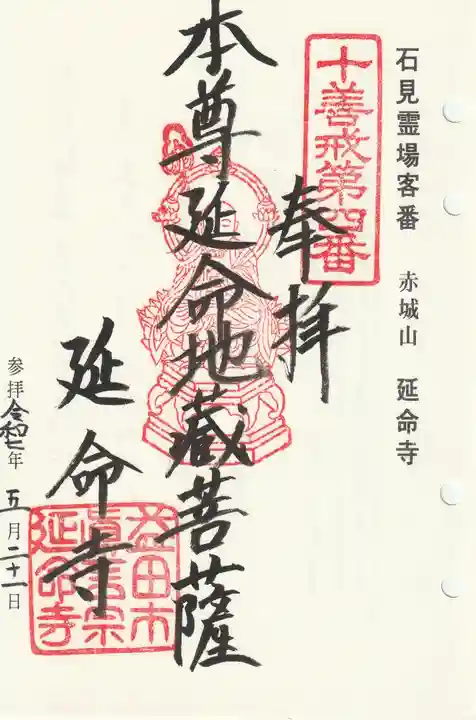 石見霊場客番 赤城山 延命寺
十善戒第四番
奉拝
本尊延命地蔵菩薩
延命寺
益田市
真言宗
延命寺
参拝令和七年五月二十一日